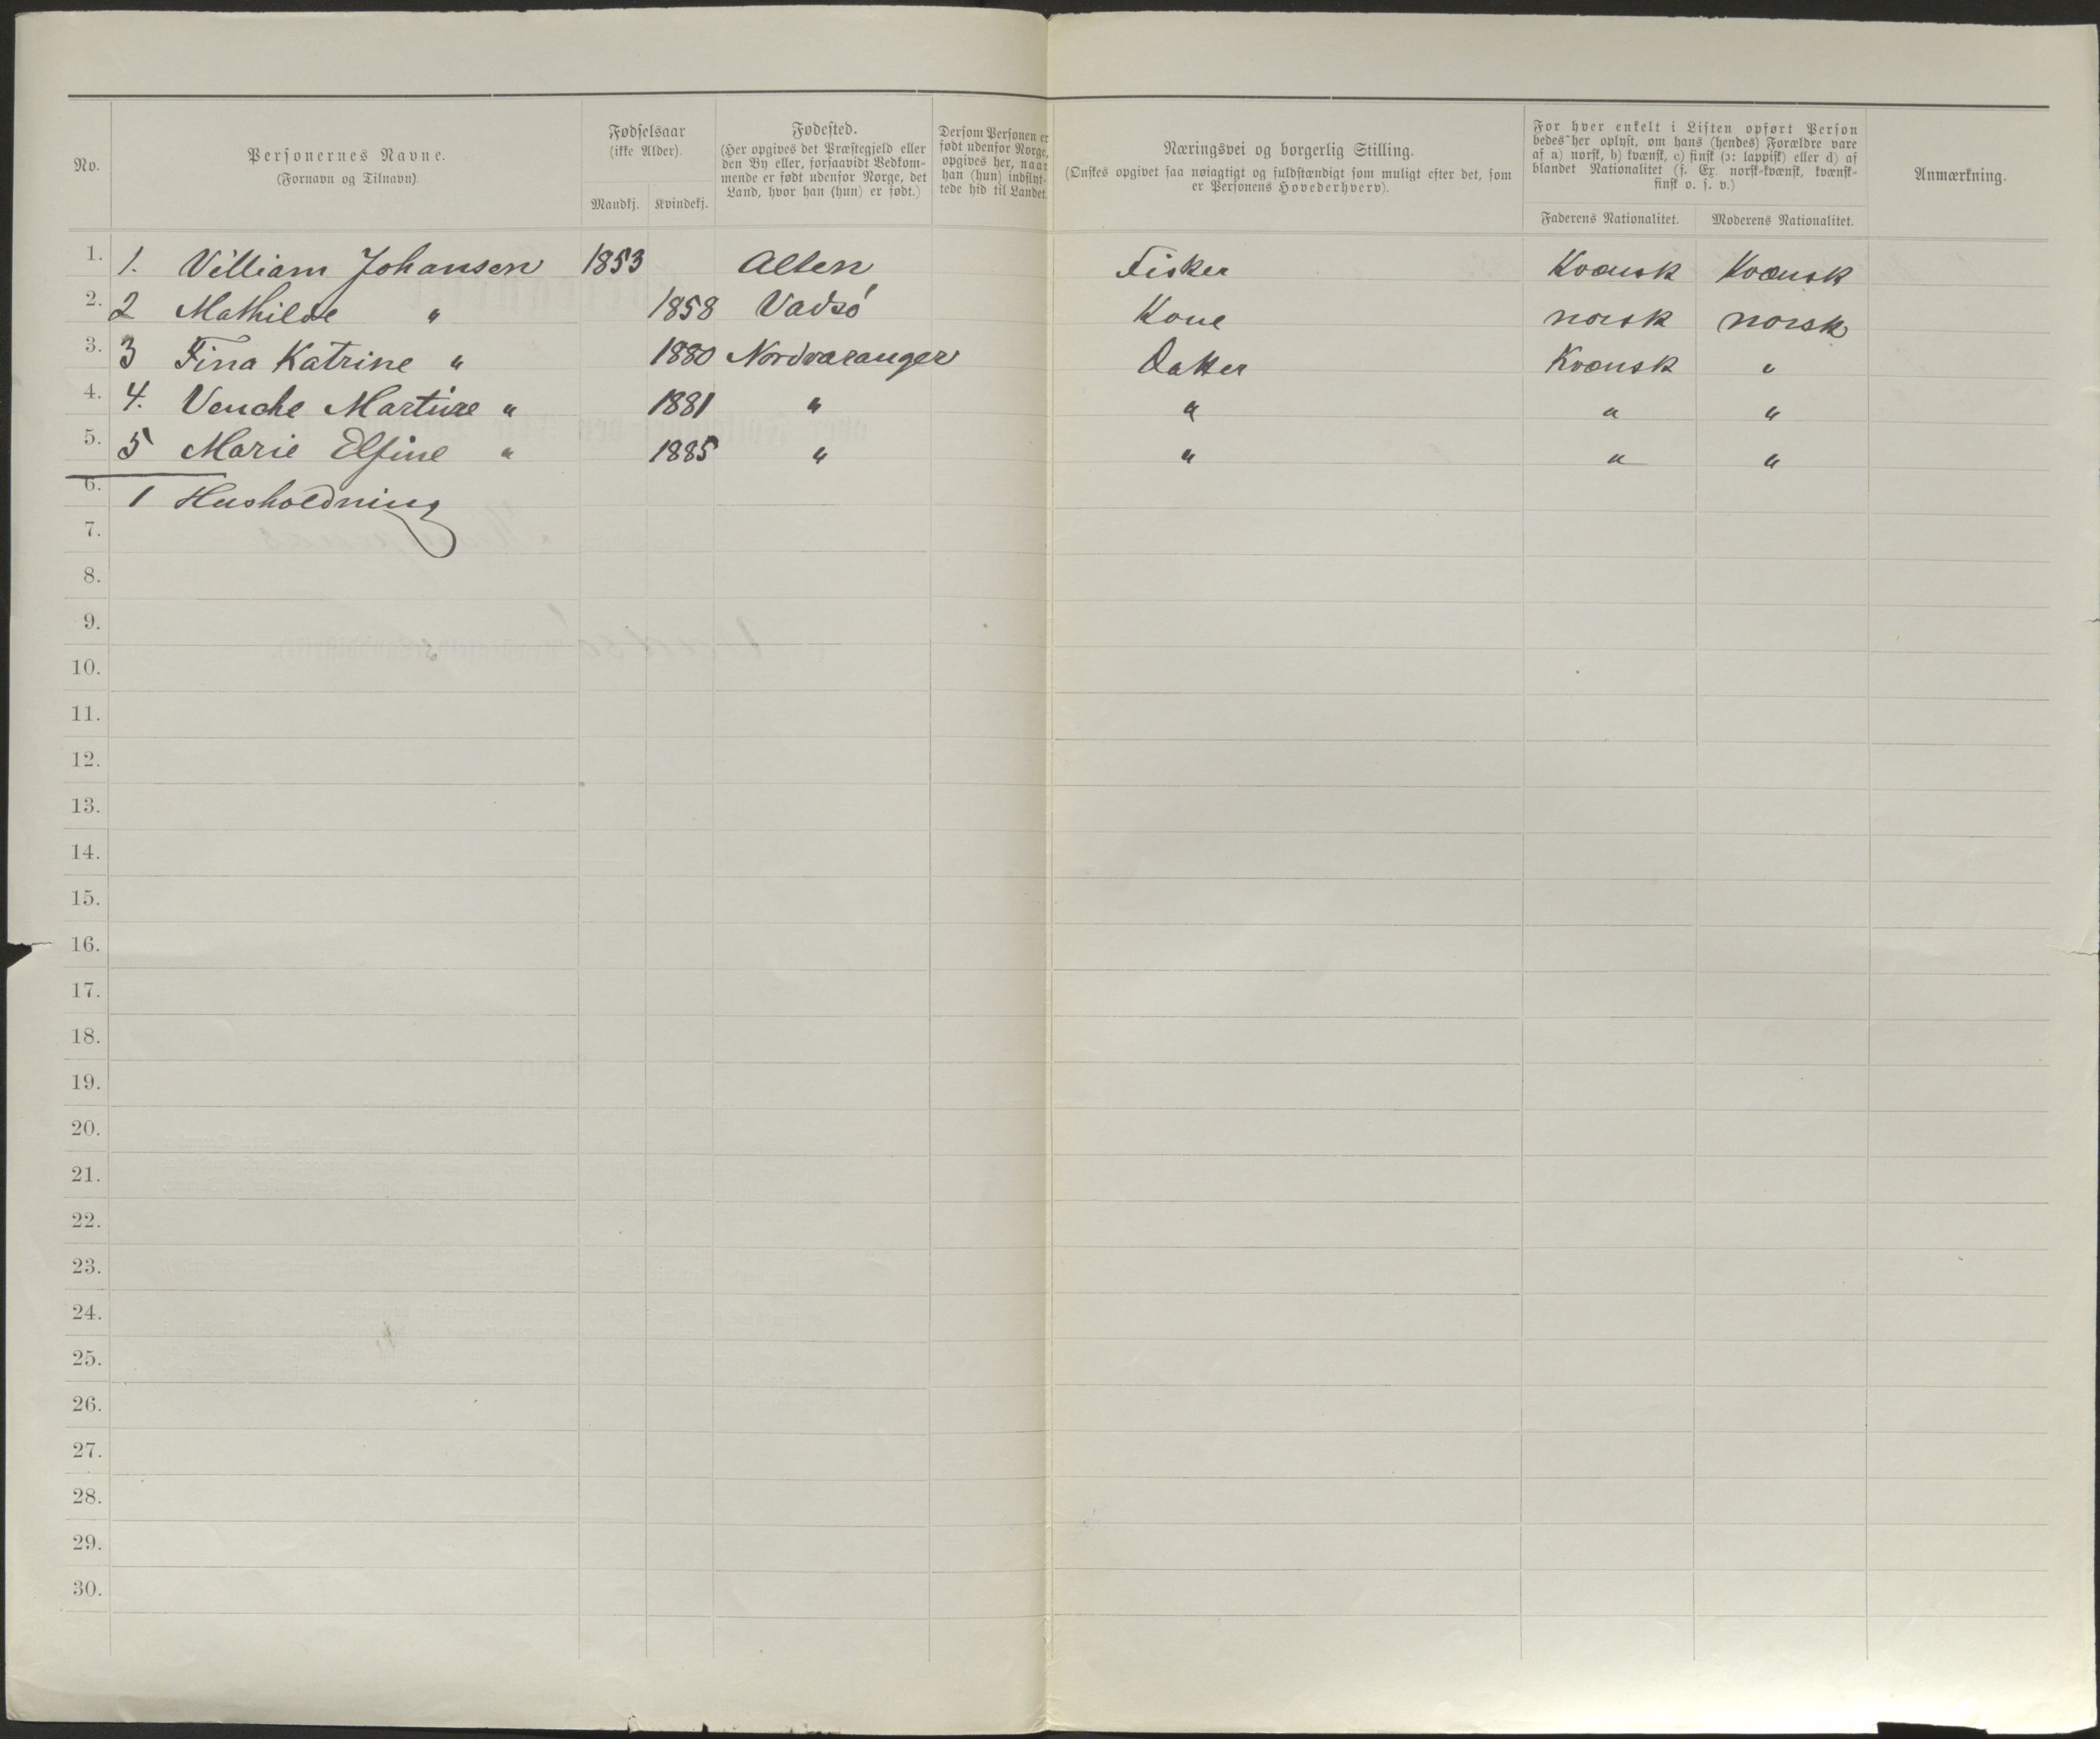 No.
Personernes Navne.
(Fornavn og Tilnavn).
Fødselsaar
(ikke Alder).
Mandkj. Kvindekj.
Fødested.
(Her opgives det Præstegjeld eller
den By eller, forsaavidt Vedkom-
mende er født udenfor Norge, det
Land, hvor han (hun) er født.)
Dersom Personen er
født udenfor Norge,
opgives her, naar
han (hun) indflyt-
tede hid til Landet.
Næringsvei og borgerlig Stilling.
(Ønskes opgivet saa nøiagtigt og fuldstændigt som muligt efter det, som
er Personens Hovederhverv).
For hver enkelt i Listen opført Person
bedes her oplyst, om hans (hendes) Forældre vare
af a) norsk, b) kvænsk, c) finsk (ɔ: lappisk) eller d) af
blandet Nationalitet (f. Ex. norsk-kvænsk, kvænsk-
finsk o. s. v.)
Faderens Nationalitet. Moderens Nationalitet.
Anmærkning.
1. 1. Villiam Johansen 1853 Alten Fisker Kvænsk Kvænsk
2. 2 Mathilde " 1858 Vadsö Kone norsk norsk
3. 3 Fina Katrine " 1880 Nordvaranger Datter Kvænsk "
4. 4. Venche Martine " 1881 " " " "
5. 5 Marie Elfine " 1885 " " " "
6. 1 Husholdning
7.
8.
9.
10.
11.
12.
13.
14.
15.
16.
17.
18.
19.
20.
21.
22.
23.
24.
25.
26.
27.
28.
29.
30.